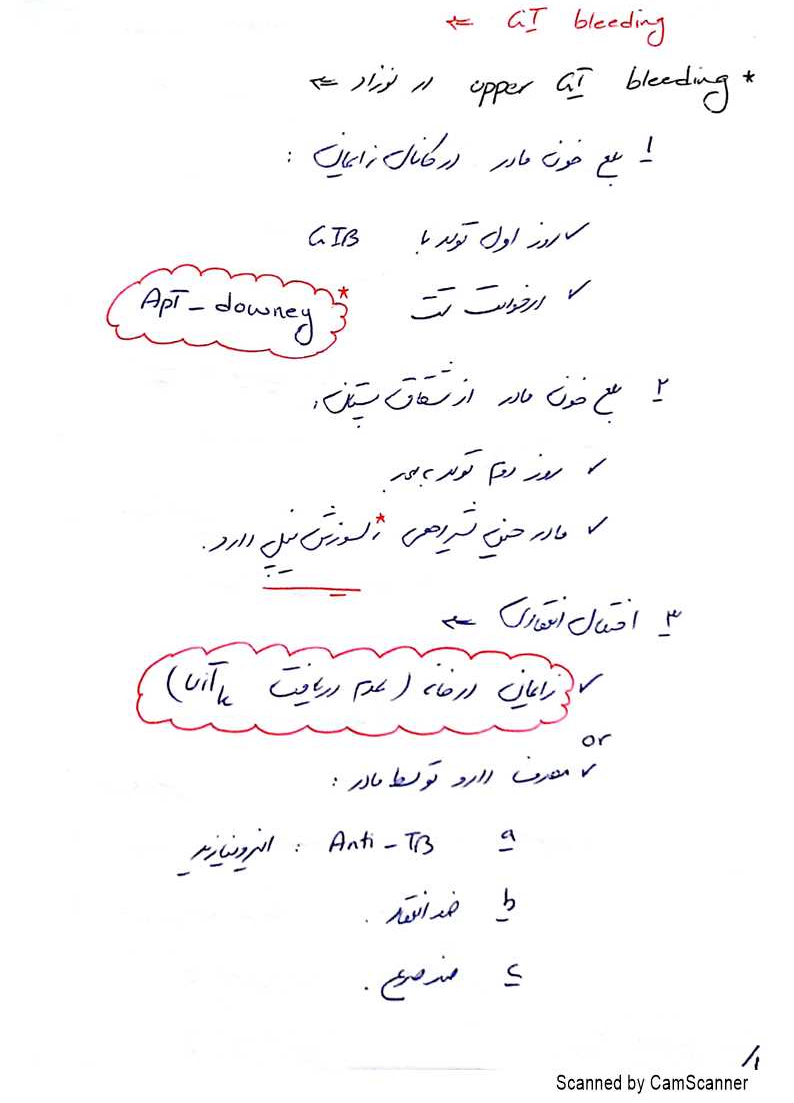 GI bleeding ⇐
* upper GI bleeding در نوزاد ⇐
۱ بلع خون مادر در کانال زایمان :
✓ روز اول تولد با GIB
✓ درخواست تست Apt - downey *
۲ بلع خون مادر از شقاق پستان :
✓ روز دوم تولد به بعد.
✓ مادر حین شیردهی * سوزش نیپل دارد.
۳ اختلال انعقادی ⇐
✓ زایمان در خانه (عدم دریافت vit k)
or
✓ مصرف دارو توسط مادر :
a Anti - TB : ایزونیازید
b ضد انعقاد .
c ضد صرع .
۱/
Scanned by CamScanner